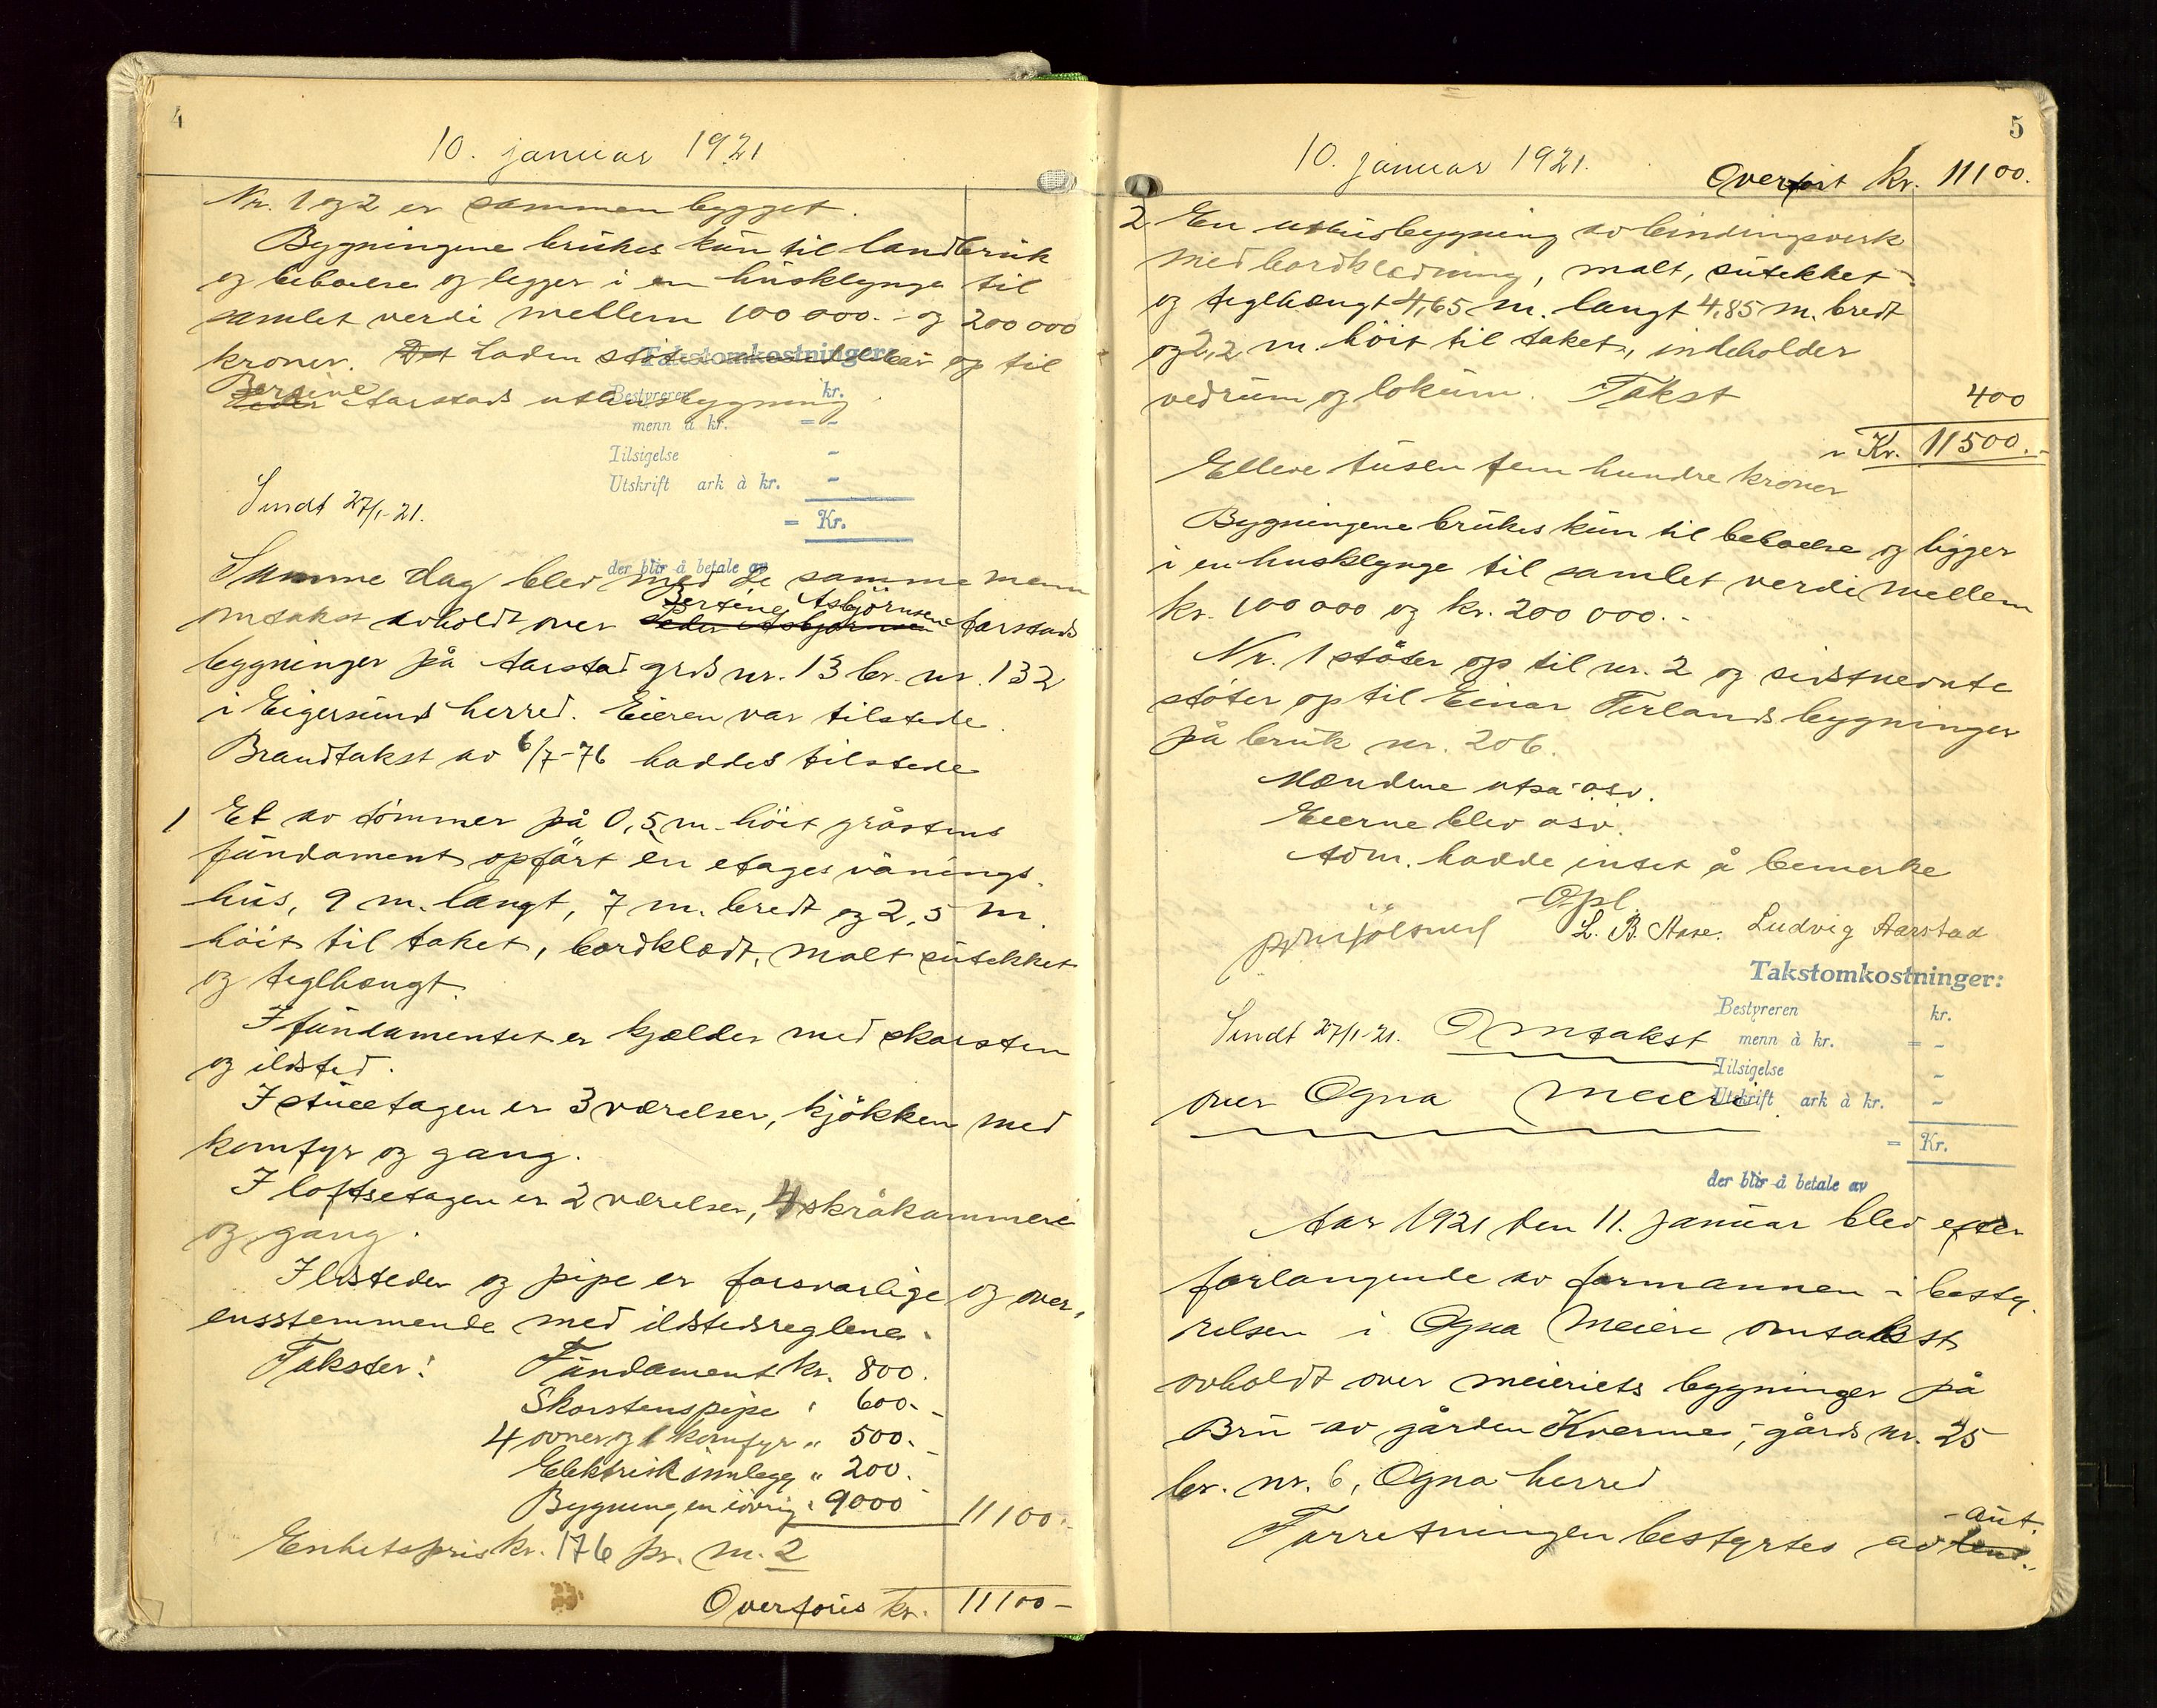 4
10. januar 1921
Nr. 1 og 2 er sammenbygget.
Bygningene brukes kun til landbruk
og beboelse og legger i en husklynge til
samlet verdi mellem 100 000.- og 200 000
kroner. Det Laden støter op til
Takstomkostninger:
Bersine
Peder Aarstads uthusbygning
Bestyreren kr.
menn à kr. = -
Tilsigelse -
Utskrift ark à kr. -
Sendt 27/1-21.
= Kr.
der blir å betale av
Samme dag blev med de samme menn
Bertine Asbjørnsen
omtakst avholdt over Peder Asbjørnsen Aarstads
bygninger på Aarstad grds nr. 13 br. nr. 132
i Eigersund herred. Eieren var tilstede.
Brandtakst av 6/7-76 haddes tilstede
1 Et av tømmer på 0,5 m. høit gråstens
fundament opført èn etages vånings-
hus, 9 m. langt, 7 m. bredt og 2,5 m.
høit til taket, bordklædt, malt sutekket
og teglhængt.
I fundamentet er kjælder med skorsten
og ildsted.
I stueetagen er 3 værelser, kjøkken med
komfyr og gang.
I loftsetagen er 2 værelser, 4 skråkammere
og gang.
Ildsteder og pipe er forsvarlige og over-
ensstemmende med ildstedsreglene.
Takster: Fundament kr. 800.
Skorstenspipe " 600.-
4 ovner og 1 komfyr " 500.-
Elektrisk innlegg " 200.
Bygningen iøvrig " 9000 11100.-
Enhetspris kr. 176 pr. m.2
Overføres kr. 11100-
5
10. januar 1921.
Overført kr. 11100.
2 En uthusbygning av bindingsverk
med bordklædning, malt, sutekket
og teglhængt 4,65 m. langt 4,85 m. bredt
og 2,2 m. høit til taket, indeholder
vedrum og lokum. Takst 400
Kr. 11500.-
Elleve tusen fem hundre kroner
Bygningene brukes kun til beboelse og ligger
i en husklynge til samlet verdi mellem
kr. 100 000 og kr. 200 000.-
Nr. 1 støter op til nr. 2 og sidstnevnte
støter op til Einar Terlands bygninger
på bruk nr. 206.
Mændene utsa osv.
Eierne blev osv.
Adm. hadde intet å bemerke
Opl.
L. B. Aase. Ludvig Aarstad
Takstomkostninger:
Bestyreren kr.
Sendt 27/1-21. Omtakst
menn à kr. = -
Tilsigelse -
over Ogna Meieri.
Utskrift ark à kr. -
= Kr.
der blir å betale av
Aar 1921 den 11. januar blev efter
forlangende av formannen i besty-
relsen i Ogna Meieri omtakst
avholdt over meieriets bygninger på
Bru av gården Kvermes, gårds nr. 25
br. nr. 6, Ogna herred
aut.
Forretningen bestyrtes av